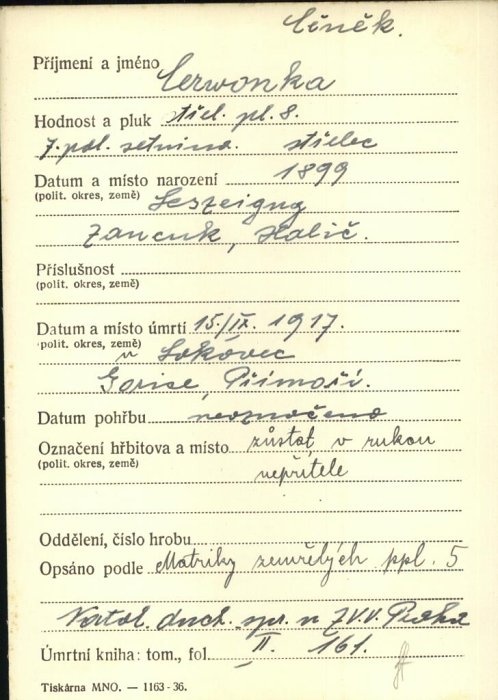 Číněk.
Příjmení a jméno Cerwonka
Hodnost a pluk střel. pl. 8.
7. pol. setnina. střelec
Datum a místo narození 1899
(polit. okres, země) Leszeigug
Zancuk, Halič.
Příslušnost
(polit. okres, země)
Datum a místo úmrtí 15./IX. 1917.
(polit. okres, země) u Lokovec
Gorise, Přímoří.
Datum pohřbu neoznačeno
Označení hřbitova a místo zůstal v rukou
(polit. okres, země) nepřítele
Oddělení, číslo hrobu
Opsáno podle Matriky zemřelých ppl. 5
Katol. duch. spr. u Z.V.V. Praha
Úmrtní kniha: tom., fol. II. 161.
Tiskárna MNO. — 1163 - 36.